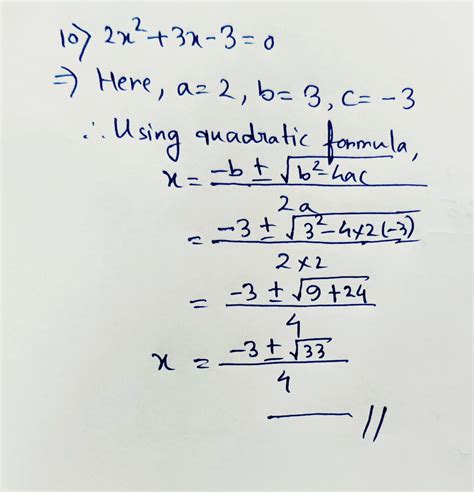 10) 2x²+3x-3=0
⇒ Here, a=2, b=3, c=-3
∴ Using quadratic formula,
x = (-b ± √(b²-4ac)) / 2a
= (-3 ± √(3²-4×2(-3))) / 2×2
= (-3 ± √(9+24)) / 4
x = (-3 ± √33) / 4
—— //